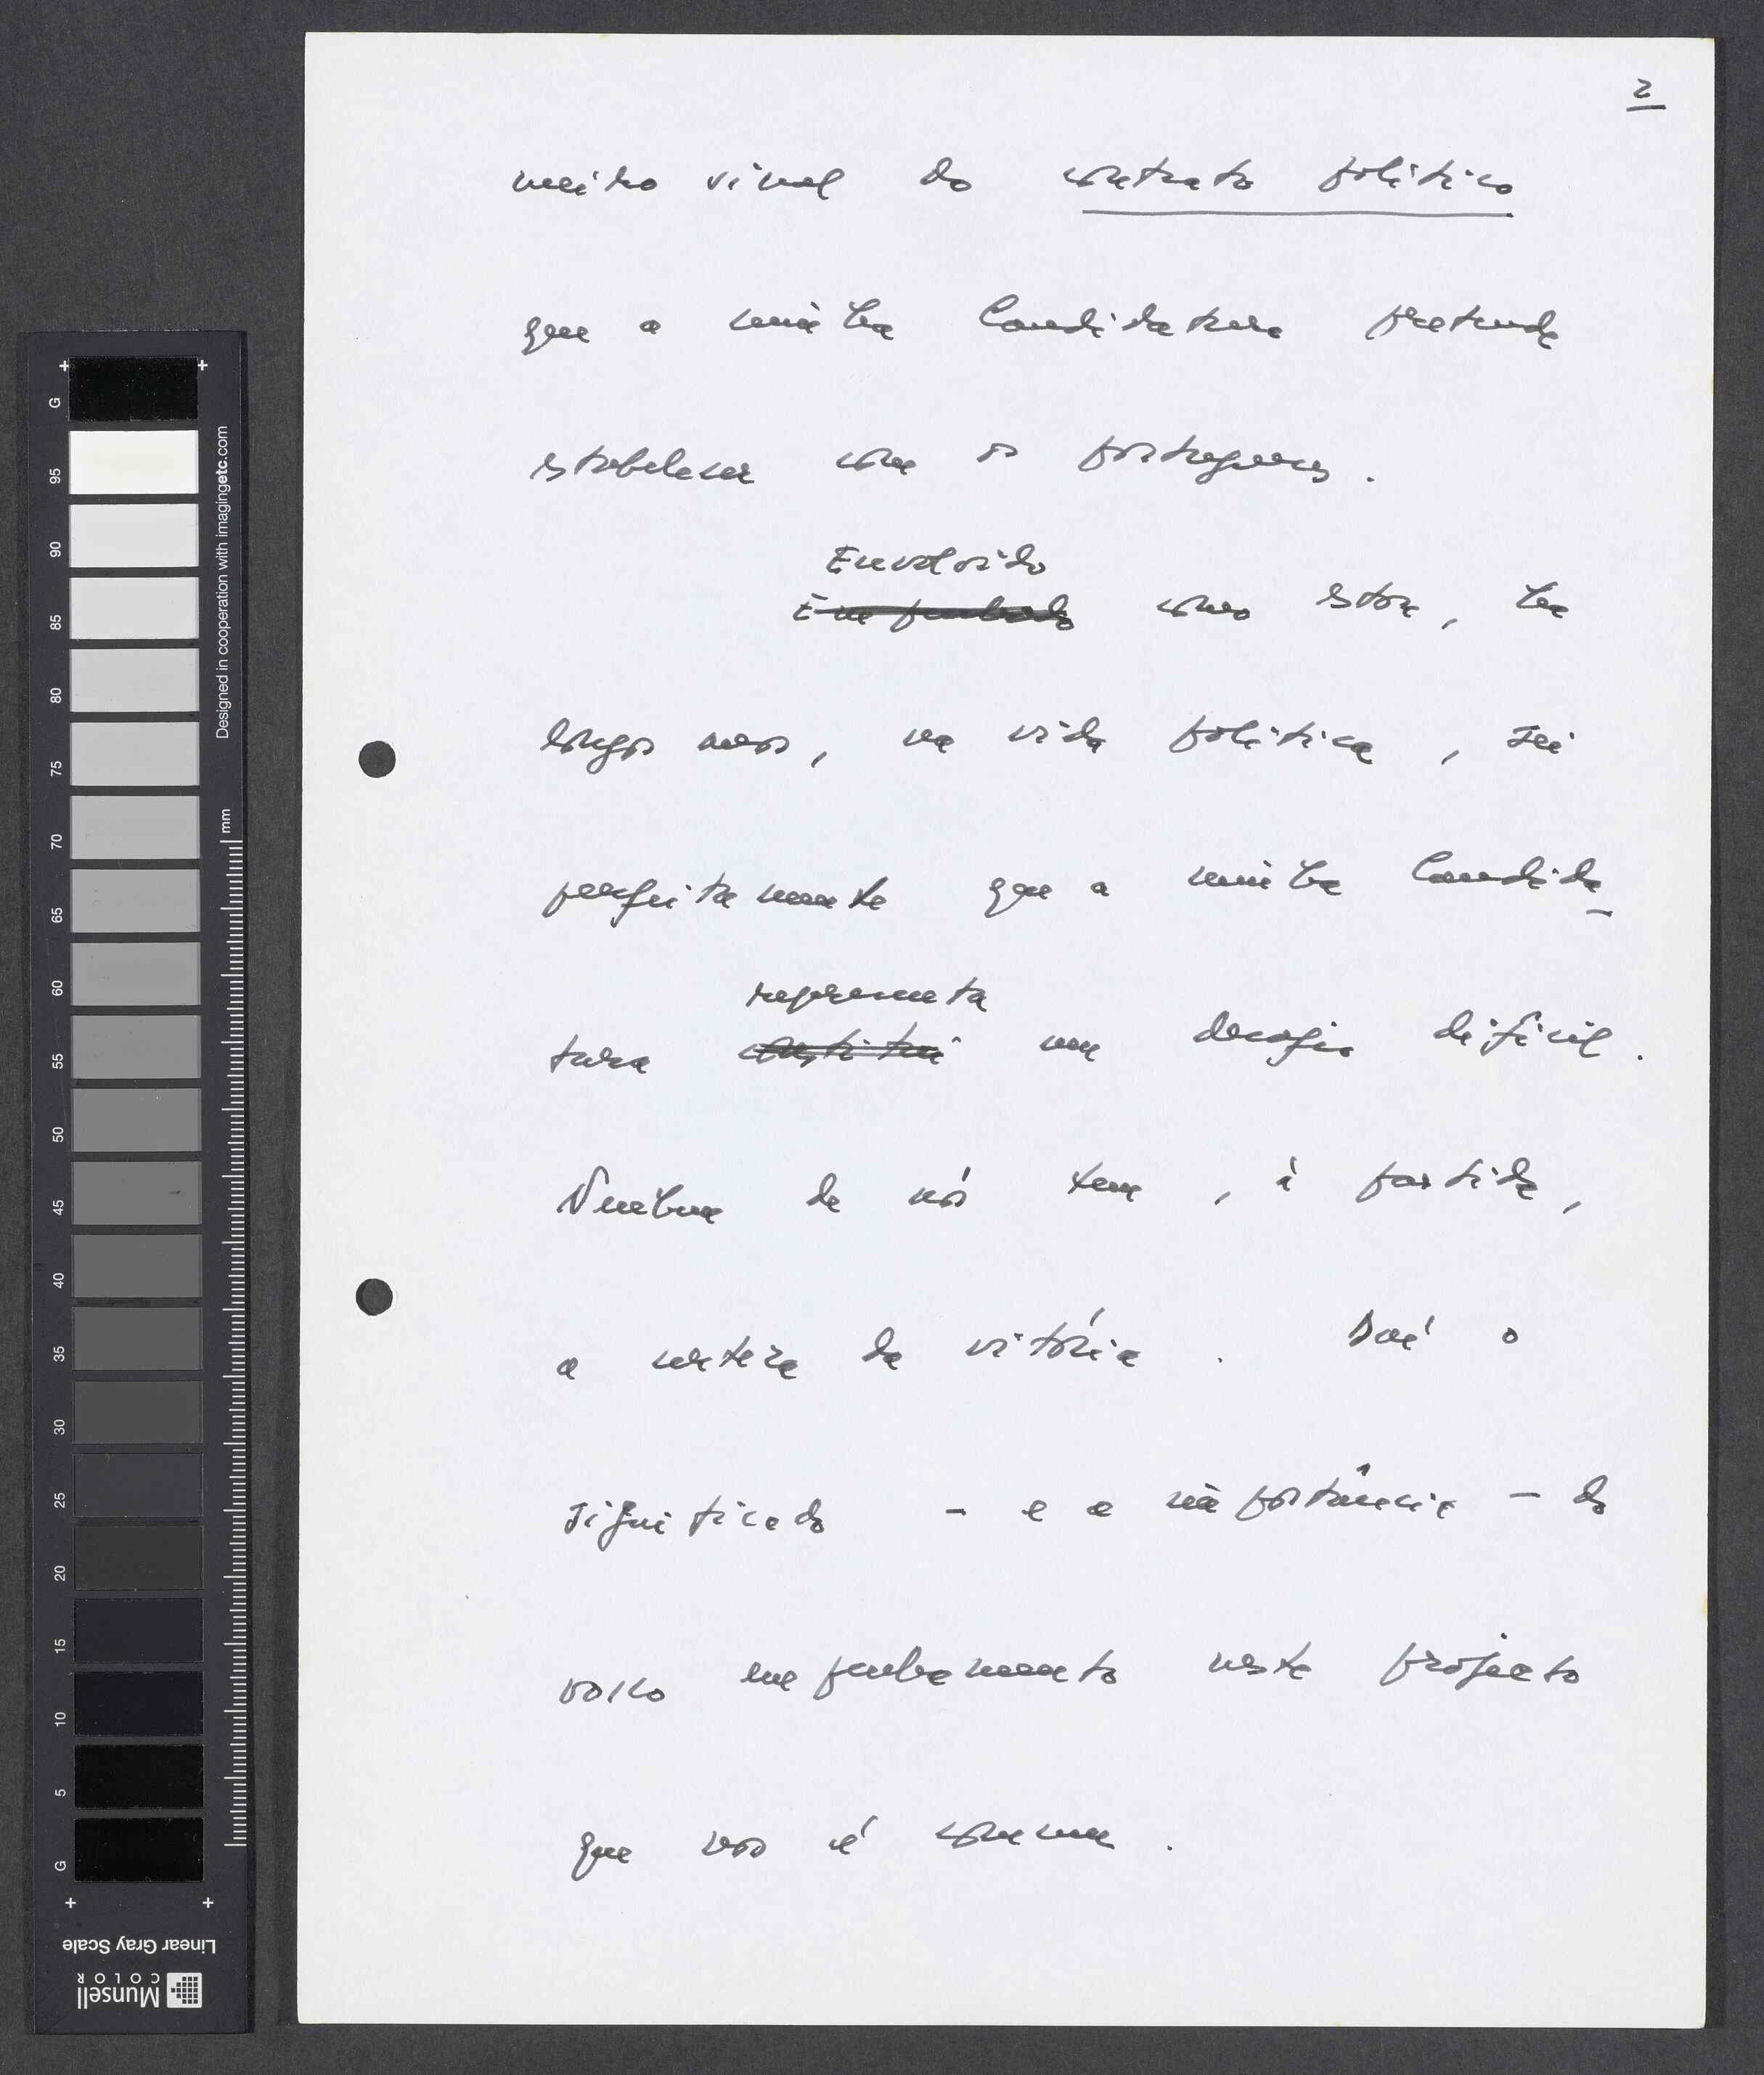 2
meiro sinal do contrato político
que a minha Candidatura pretende
estabelecer com os portugueses.
Envolvido
Empenhado como estou, há
longos anos, na vida política, sei
perfeitamente que a minha Candida-
tura
representa
constitui um desafio difícil.
Nenhum de nós tem, à partida,
a certeza da vitória. Daí o
significado - e a importância - do
vosso empenhamento neste projecto
que nos é comum.
G
95
90
85
80
75
70
65
60
55
50
45
40
35
30
25
20
15
10
5
G
mm
Designed in cooperation with imagingetc.com
Linear Gray Scale
Munsell
COLOR